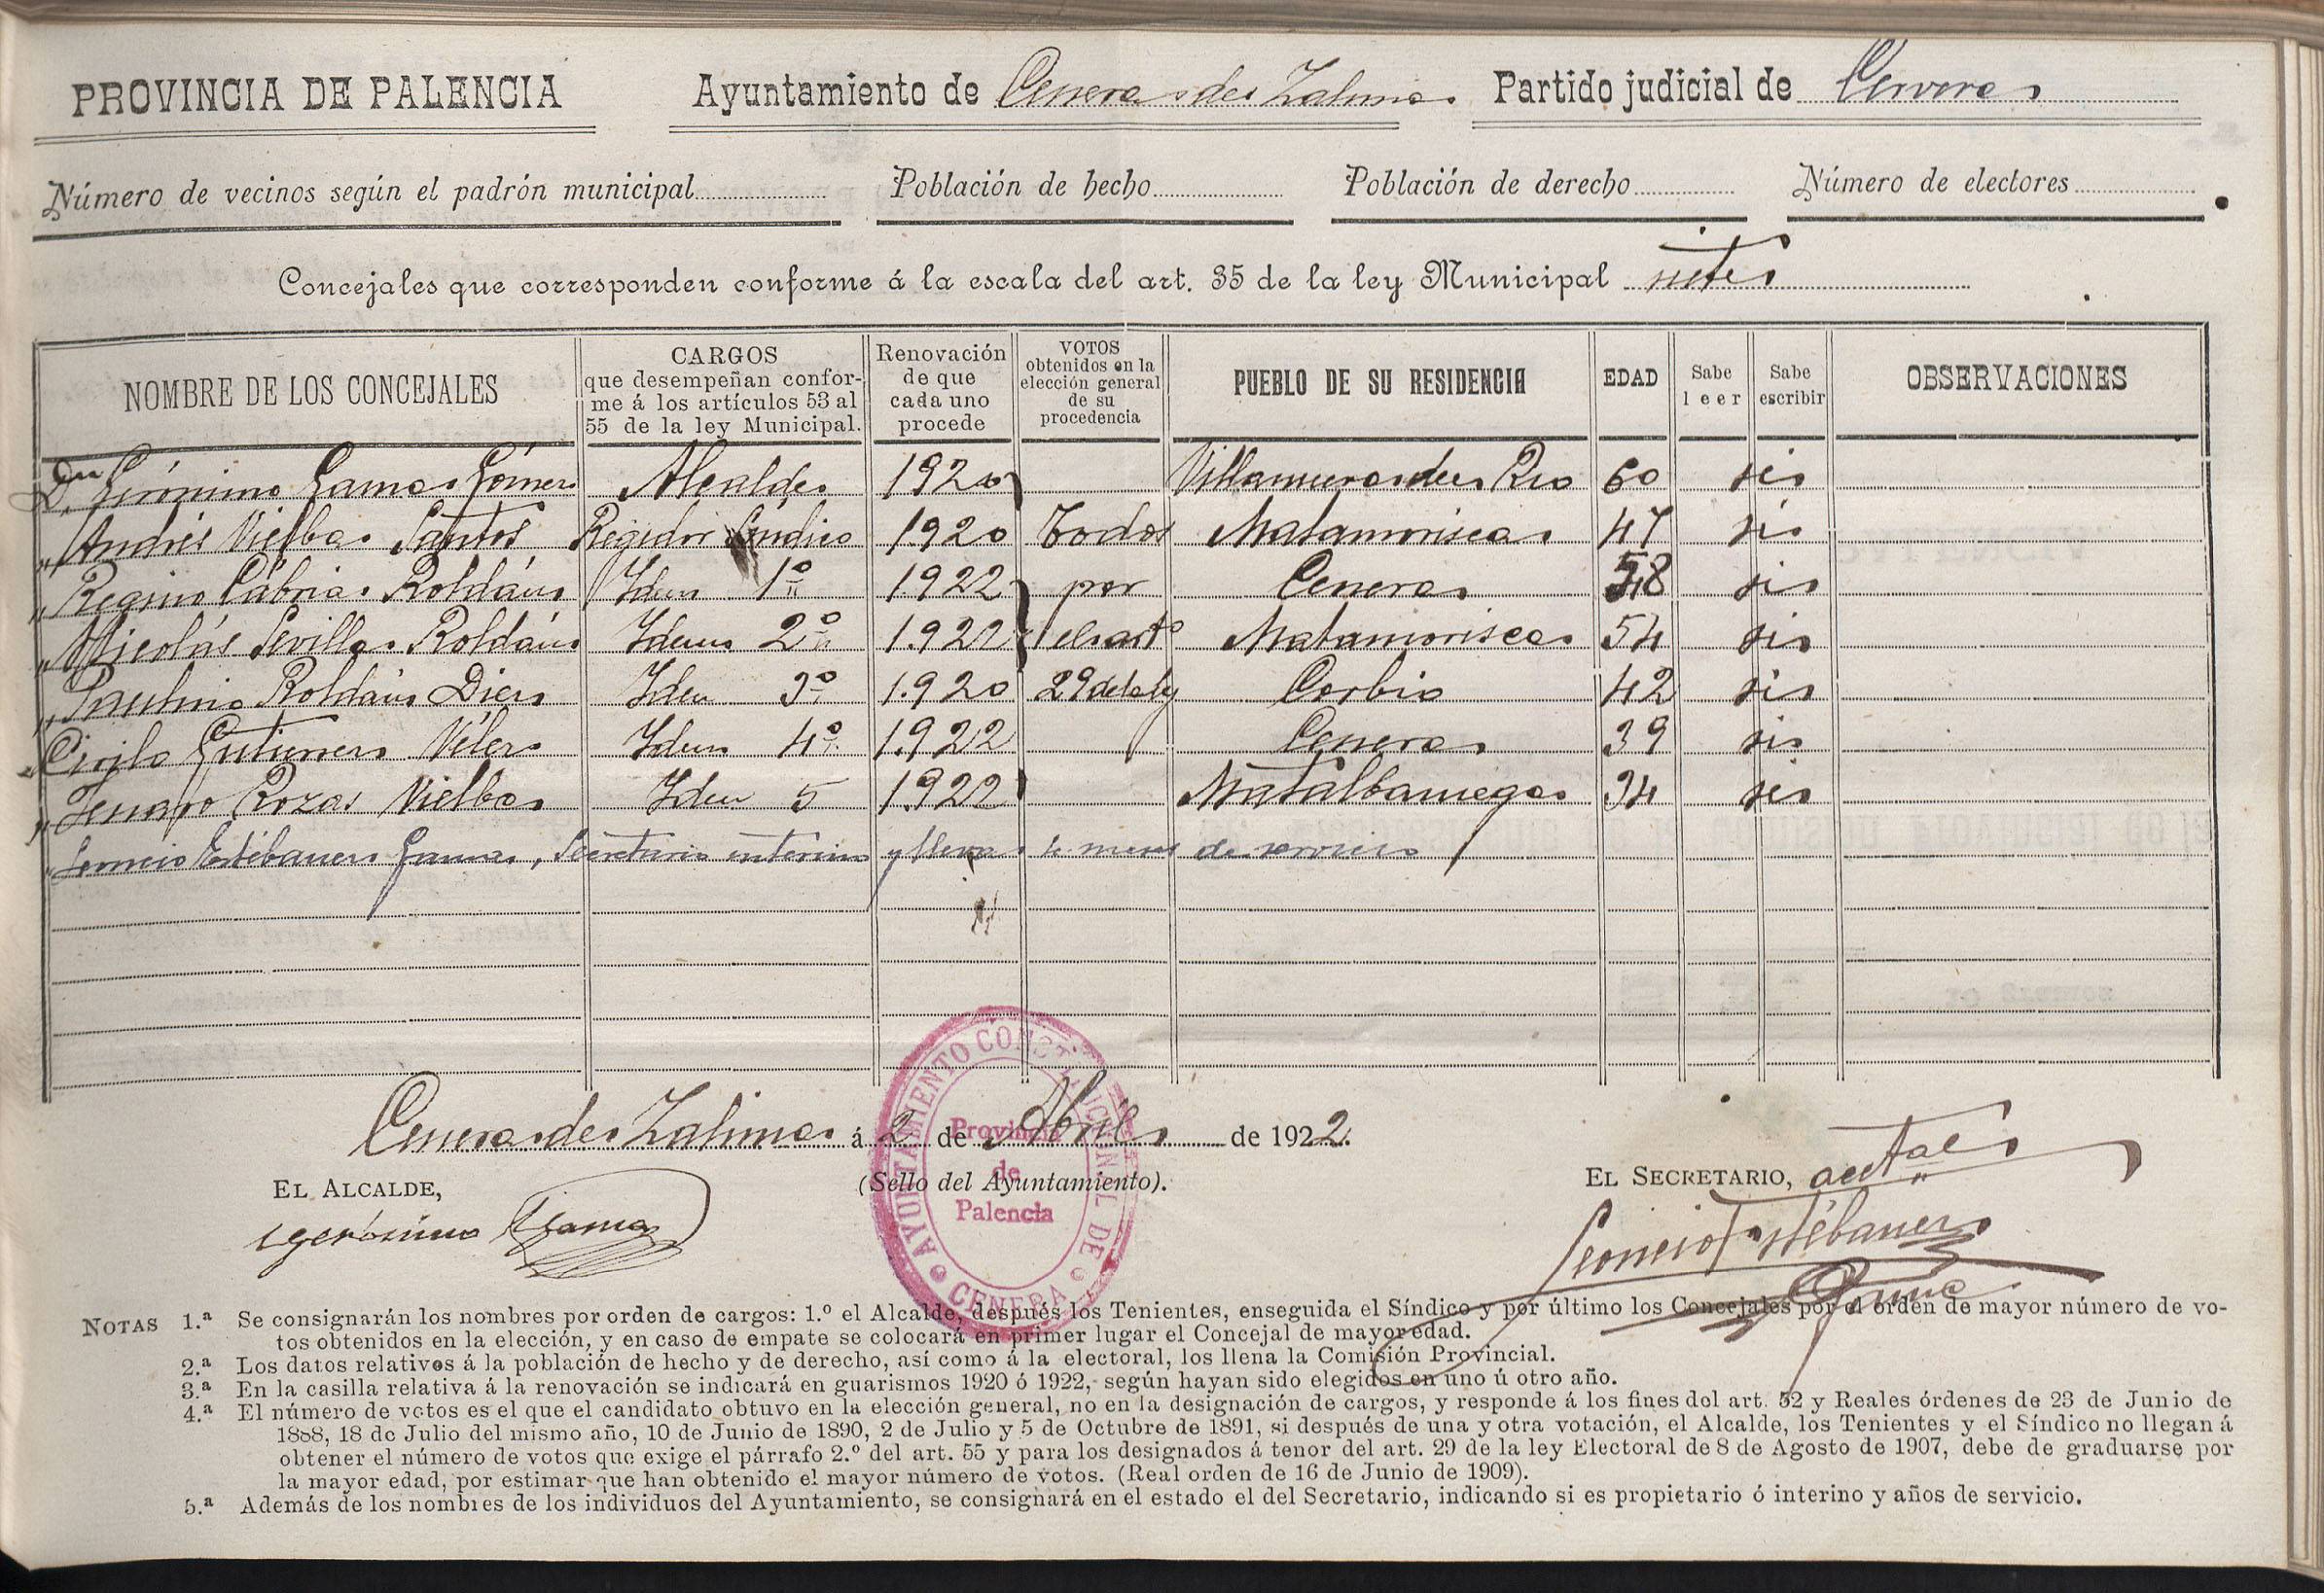 PROVINCIA DE PALENCIA Ayuntamiento de Cenera de Zalima Partido judicial de Cervera
Número de vecinos según el padrón municipal Población de hecho Población de derecho Número de electores
Concejales que corresponden conforme á la escala del art. 35 de la ley Municipal siete
NOMBRE DE LOS CONCEJALES CARGOS que desempeñan confor- Renovación VOTOS PUEBLO DE SU RESIDENCIA EDAD Sabe Sabe OBSERVACIONES
me á los artículos 53 al de que obtenidos en la leer escribir
55 de la ley Municipal. cada uno elección general
procede de su
procedencia
Dn Gerónimo Gama Gómez Alcalde 1920 Villanueva del Rio 60 si
" Andrés Vielba Santos Regidor Síndico 1920 Todos Matamorisca 47 si
" Regino Cábria Roldán Idem 1º 1922 por Cenera 58 si
" Nicolás Sevilla Roldán Idem 2º 1.922 el artº Matamorisca 54 si
" Paulino Roldán Diez Idem 3º 1.920 29 de la ley Corbio 42 si
" Cirilo Gutierrez Vélez Idem 4º 1.922 Cenera 39 si
" Genaro Rozas Vielba Idem 5 1922 Matalbaniega 34 si
" Leoncio Estébanez Gama, Secretario interino y lleva 4 meses de servicio
Cenera de Zalima á 2 de Abril de 1922.
EL ALCALDE, (Sello del Ayuntamiento). EL SECRETARIO, acctal
Gerónimo Gama Leoncio Estébanez
AYUNTAMIENTO CONSTITUCIONAL DE CENERA
Provincia de Palencia
NOTAS 1.ª Se consignarán los nombres por orden de cargos: 1.º el Alcalde, después los Tenientes, enseguida el Síndico y por último los Concejales por el orden de mayor número de vo-
tos obtenidos en la elección, y en caso de empate se colocará en primer lugar el Concejal de mayor edad.
2.ª Los datos relativos á la población de hecho y de derecho, así como á la electoral, los llena la Comisión Provincial.
3.ª En la casilla relativa á la renovación se indicará en guarismos 1920 ó 1922, según hayan sido elegidos en uno ú otro año.
4.ª El número de votos es el que el candidato obtuvo en la elección general, no en la designación de cargos, y responde á los fines del art. 52 y Reales órdenes de 23 de Junio de
1888, 18 de Julio del mismo año, 10 de Junio de 1890, 2 de Julio y 5 de Octubre de 1891, si después de una y otra votación, el Alcalde, los Tenientes y el Síndico no llegan á
obtener el número de votos que exige el párrafo 2.º del art. 55 y para los designados á tenor del art. 29 de la ley Electoral de 8 de Agosto de 1907, debe de graduarse por
la mayor edad, por estimar que han obtenido el mayor número de votos. (Real orden de 16 de Junio de 1909).
5.ª Además de los nombres de los individuos del Ayuntamiento, se consignará en el estado el del Secretario, indicando si es propietario ó interino y años de servicio.